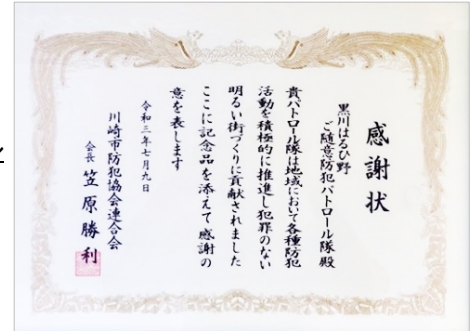 感謝状
黒川はるひ野
ご随意防犯パトロール隊殿
貴パトロール隊は地域において各種防犯
活動を積極的に推進し犯罪のない
明るい街づくりに貢献されました
ここに記念品を添えて感謝の
意を表します
令和三年七月九日
川崎市防犯協会連合会
会長 笠原勝利